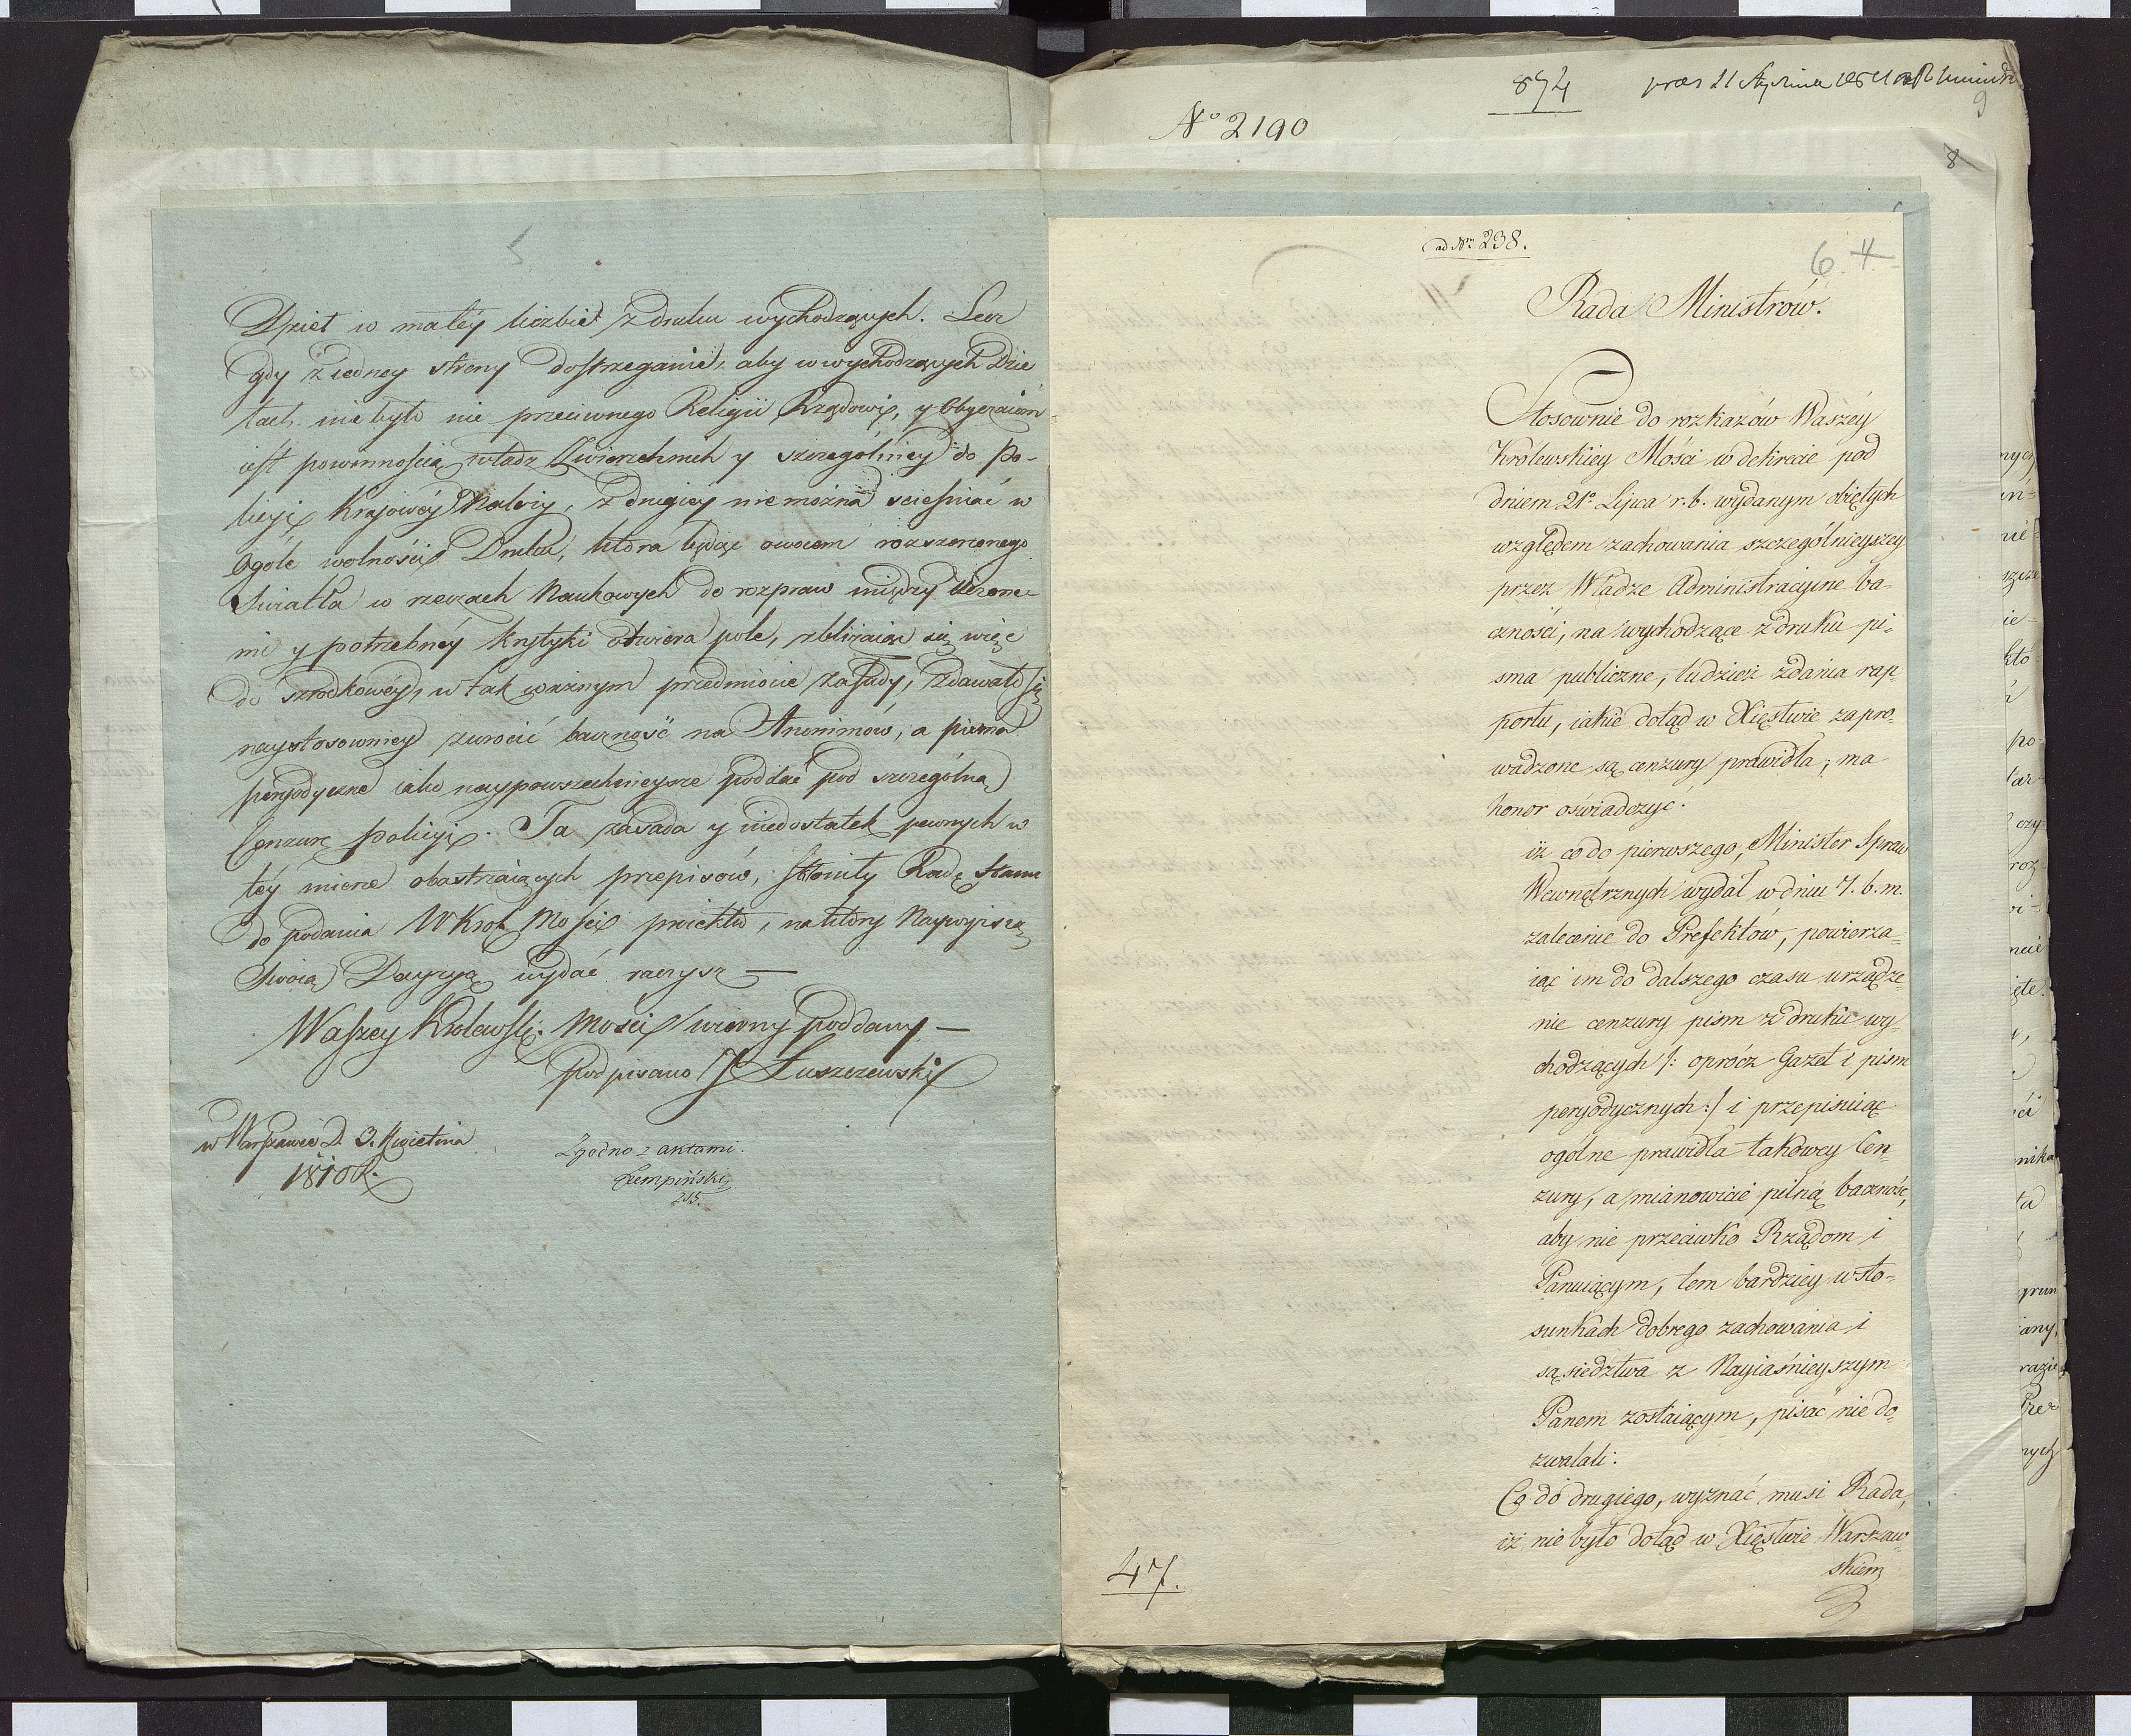 Dzieł w małéy liczbie z druku wychodzących. Lecz
gdy z iedney strony dostrzeganie, aby w wychodzących Dzie
łach nie było nic przeciwnego Religii Rządowi, y Obyczaiom
iest powinnością władz Zwierzchnich y szczególniey do Po-
licyi Krajowéy należy, z drugiey nie można ścieśniać w
Ogóle wolności Druku, która będąc owocem rozszerzonego
Swiatła w rzeczach Naukowych do rozpraw między Uczone-
mi y potrzebnéy krytyki otwiera pole, zbliżaiąc się więc
do szrodkowéy, w tak ważnym przedmiocie zasady, Zdawało się
naystosowniey zwrócić baczność na Anonimów, a pisma
peryodyczne iako naypowszechnieysze poddać pod szczególną
Cenzurę policyi. Ta zasada y niedostatek pewnych w
téy mierze obostrzaiących przepisów, skłoniły Radę Stanu
do podania W Krol Mości proiektu, na który Naywyższą
Swoią Decyzyą wydać raczysz —
Waszey Krolewski: Mości wierny poddany —
podpisano J Łuszczewski
w Warszawie D. 3. Kwietnia
1810 R.
Zgodno z aktami.
215.
874
N° 2190
9
8
ad Nr 238.
6 4
Rada Ministrów.
Stosownie do rozkazów Waszéy
Królewskiey Mości w dekrecie pod
dniem 21º Lipca r. b. wydanym obiętych
względem zachowania szczególnieyszey
przez Władze Administracyine ba-
czności, na wychodzące z druku pi-
sma publiczne, tudzież zdania rap-
portu, iakie dotąd w Xięstwie zapro-
wadzone są cenzury prawidła; ma
honor oświadczyć:
iż co do pierwszego, Minister Spraw
Wewnętrznych wydał w dniu 7. b. m.
zalecenie do Prefektów, powierza-
iąc im do dalszego czasu urządze-
nie cenzury pism z druku wy-
chodzących /: oprócz Gazet i pism
peryodycznych :/ i przepisuiąc
ogólne prawidła takowey Cen-
zury, a mianowicie pilną baczność,
aby nic przeciwko Rządom i
Panuiącym, tem bardziey w sto-
sunkach dobrego zachowania i
sąsiedztwa z Nayiaśnieyszym
Panem zostaiącym, pisać nie do-
zwalali.
Co do drugiego, wyznać musi Rada,
iż nie było dotąd w Xięstwie Warszaw-
skiem
47.